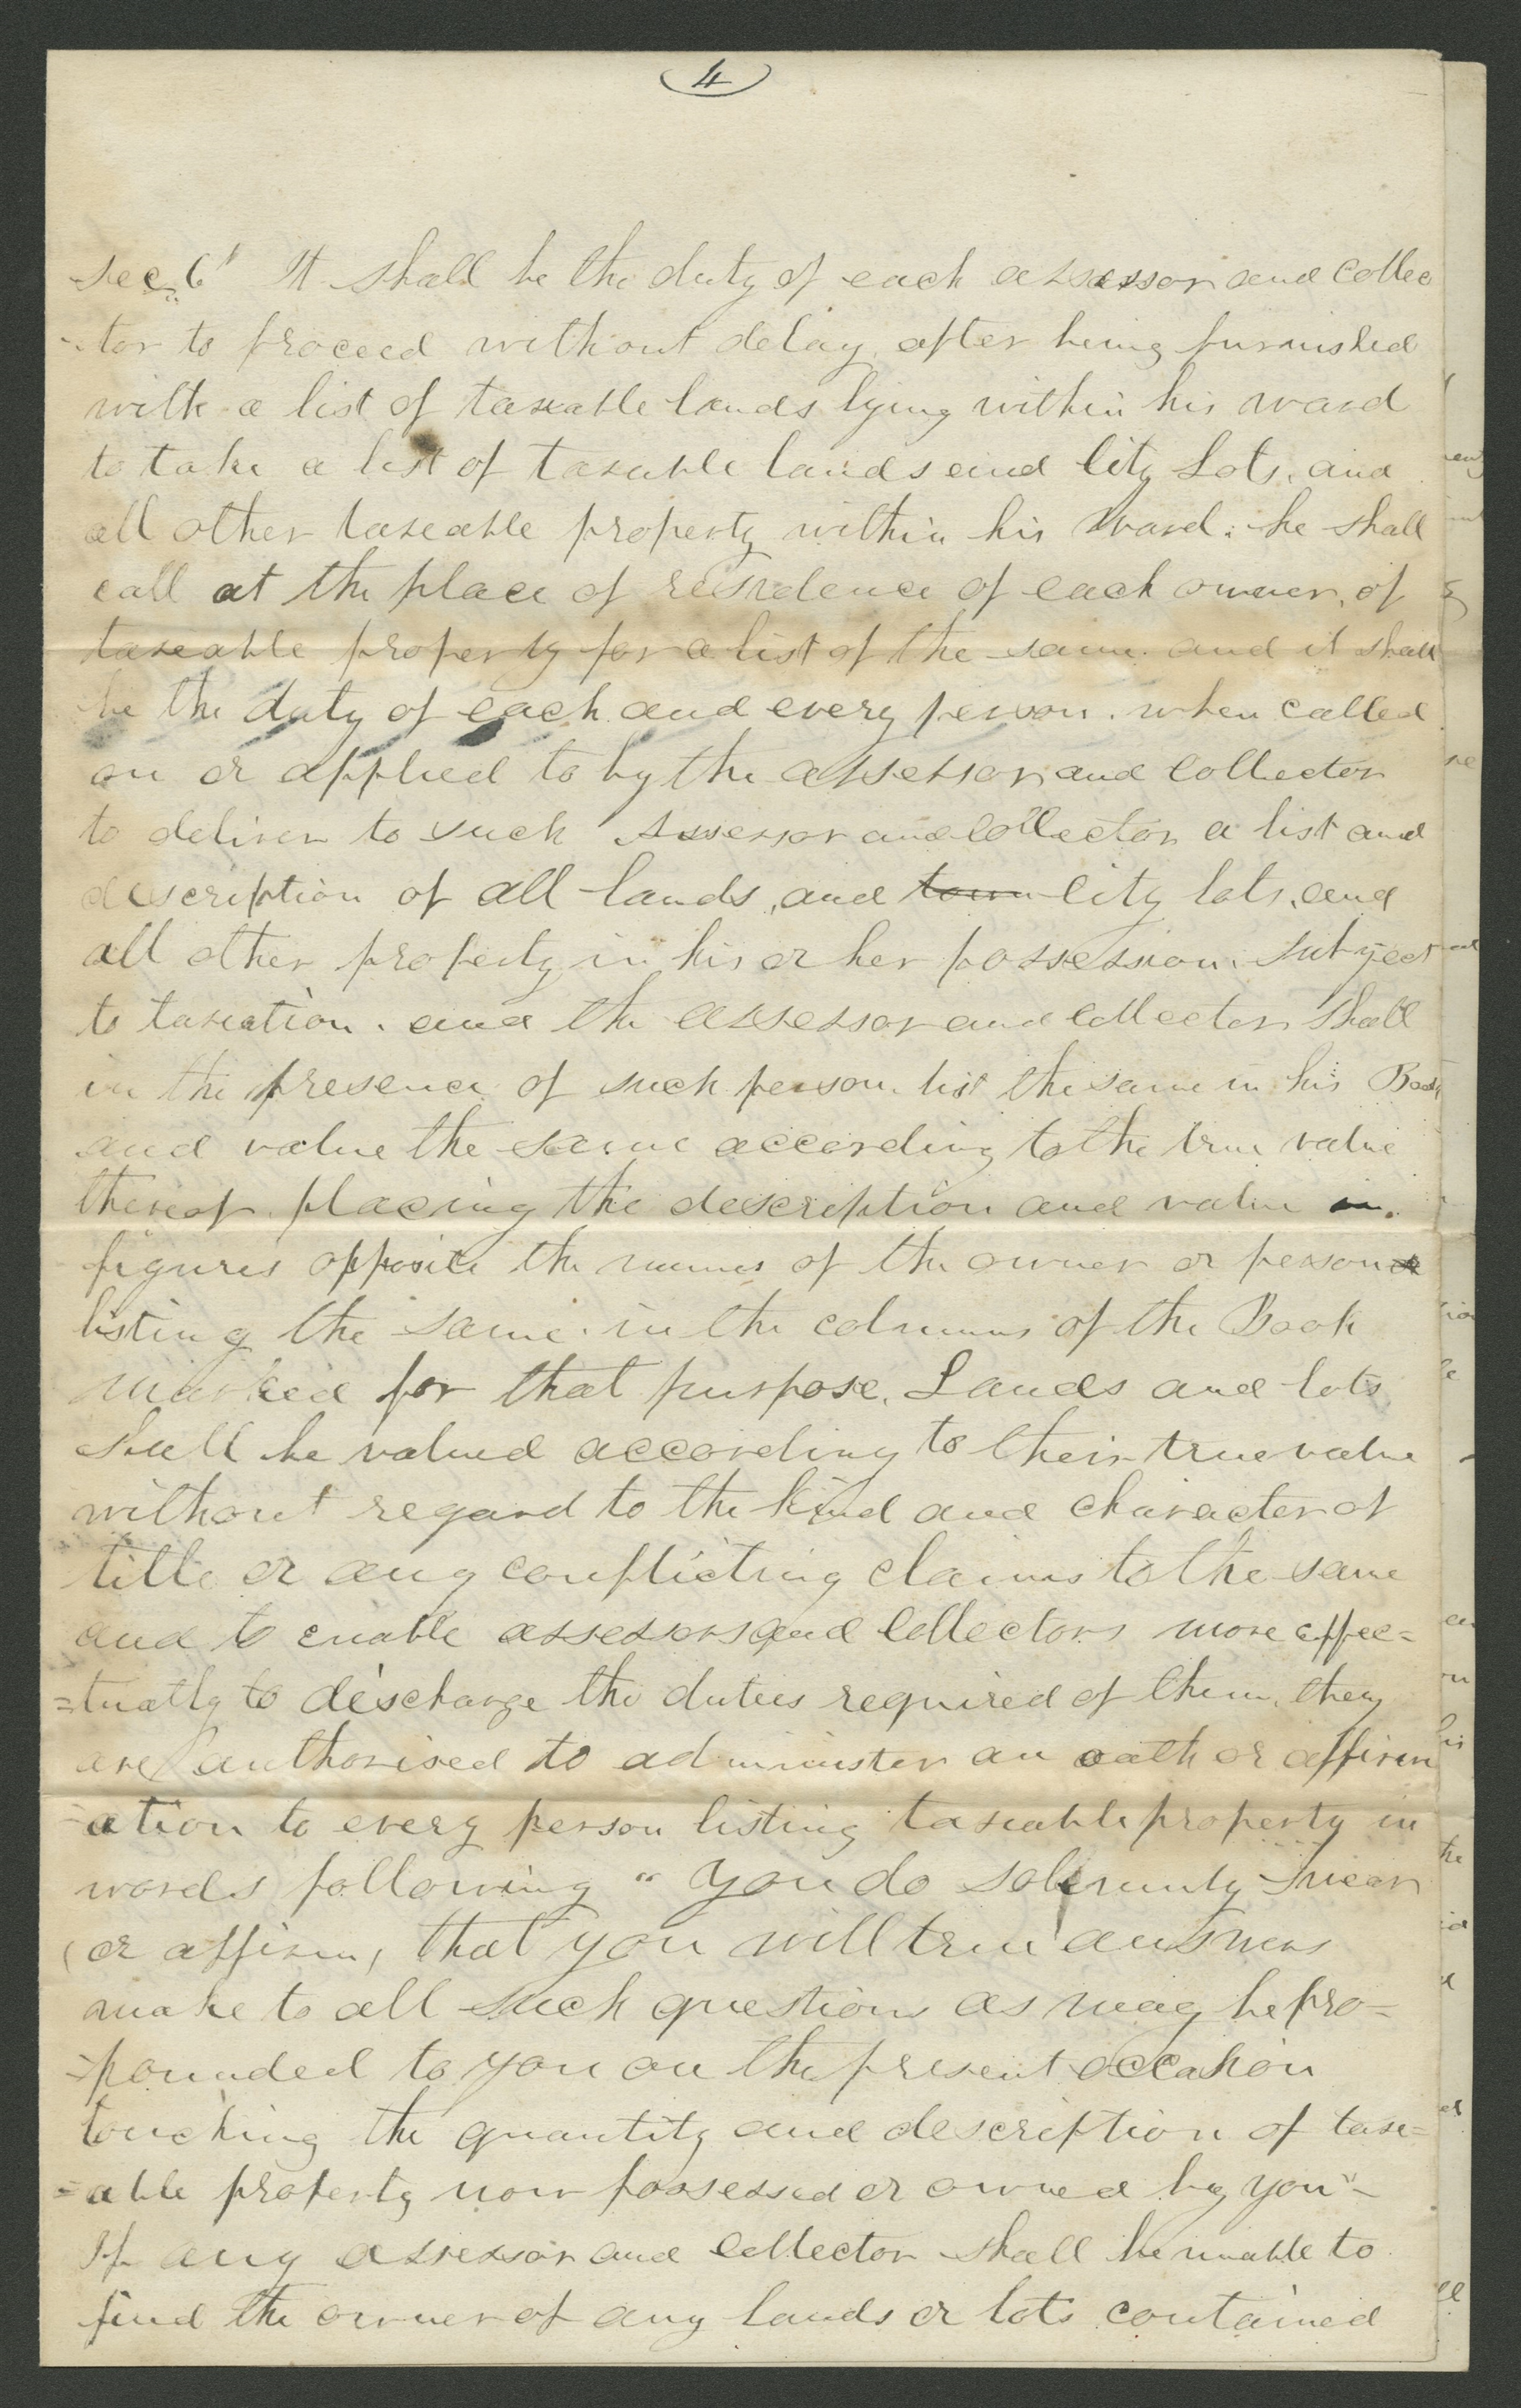 4
Sec. 6' It shall be the duty of each assessor and collec
-tor to proceed without delay, after being furnished
with a list of taxeable lands lying within his ward
to take a list of taxable lands and City Lots, and
all other taxeable property within his Ward: he shall
call at the place of residence of each owner, of
taxeable property for a list of the same. and it shall
be the duty of each and every person. when called
on or applied to by the assessor and collector
to deliver to such Assessor and collector a list and
description of all lands, and town City lots, and
all other property in his or her possession. subject
to taxeation. and the assessor and collector shall
in the presence of such person list the same in his Book
and value the same according to the true value
thereof. placing the description and value in.
figures opposite the names of the owner or person
listing the same. in the columns of the Book
marked for that purpose. Lands and lots
shall be valued according to their true value
without regard to the kind and character of
title or any conflicting claims to the same
and to enable assessors and Collectors more effec=
=tually to discharge the duties required of them, they
are authorised to administer an oath or affirm
-ation to every person listing taxeable property in
words following " You do solemnly swear
(or affirm) that you will true answers
make to all such questions as may be pro=
=pounded to you on the present occasion
touching the quantity and description of taxe=
=able property now possessed or owned by you"-
If any assessor and collector shall be unable to
find the owner of any lands or lots contained